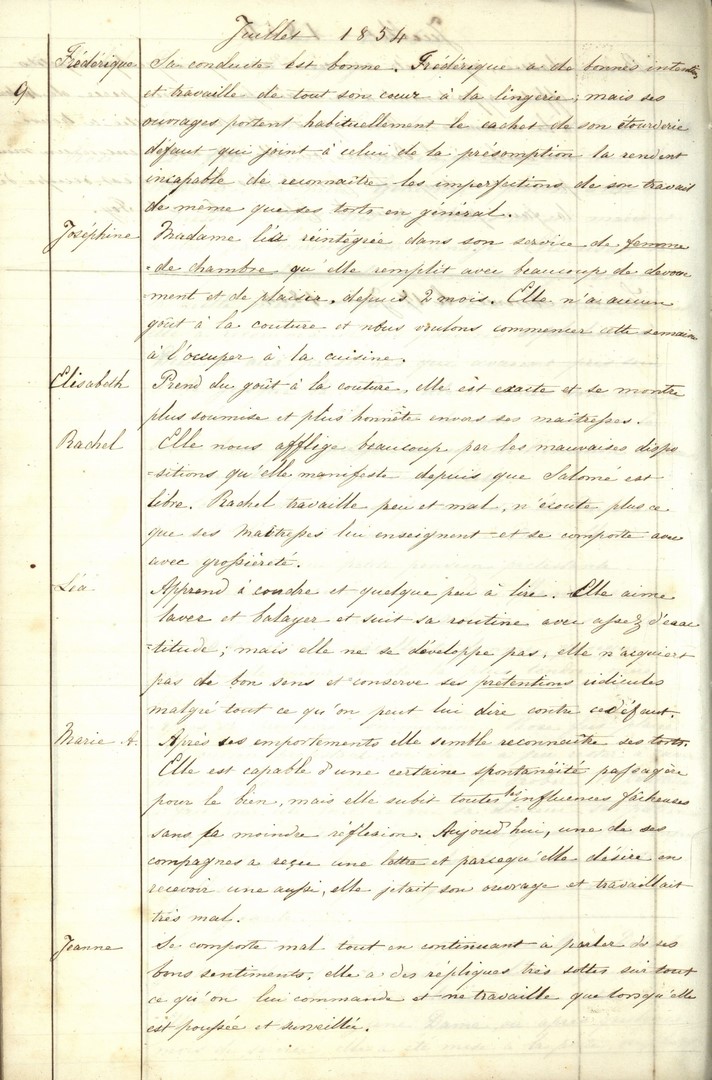 Juillet 1854
Frédérique Sa conduite est bonne. Frédérique a de bonnes intentions
9 et travaille de tout son cœur à la lingerie; mais ses
ouvrages portent habituellement le cachet de son étourderie
défaut qui joint à celui de la présomption la rendent
incapable de reconnaître les imperfections de son travail
de même que ses torts en général.
Joséphine Madame l'a réintégrée dans son service de femme
-de chambre qu'elle remplit avec beaucoup de dévoue
ment et de plaisir, depuis 2 mois. Elle n'a aucun
goût à la couture et nous voulons commencer cette semaine
à l'occuper à la cuisine.
Elisabeth Prend du goût à la couture, elle est exacte et se montre
plus soumise et plus honnête envers ses maîtresses.
Rachel Elle nous afflige beaucoup par les mauvaises dispo
-sitions qu'elle manifeste depuis que Salomé est
libre. Rachel travaille peu et mal, n'écoute plus ce
que ses Maîtresses lui enseignent et se comporte avec
avec grossièreté.
Léa Apprend à coudre et quelque peu à lire. Elle aime
laver et balayer et suit sa routine avec assez d'exac
-titude; mais elle ne se développe pas, elle n'acquiert
pas de bon sens et conserve ses prétentions ridicules
malgré tout ce qu'on peut lui dire contre ce défaut.
Marie A. Après ses emportements elle semble reconnaître ses torts.
Elle est capable d'une certaine spontanéité passagère
pour le bien, mais elle subit toutes les influences fâcheuses
sans la moindre réflexion. Aujourd'hui, une de ses
compagnes a reçue une lettre et parcequ'elle désire en
recevoir une aussi, elle jetait son ouvrage et travaillait
très mal.
Jeanne Se comporte mal tout en continuant à parler de ses
bons sentiments. elle a des répliques très sottes sur tout
ce qu'on lui commande et ne travaille que lorsqu'elle
est poussée et surveillée.